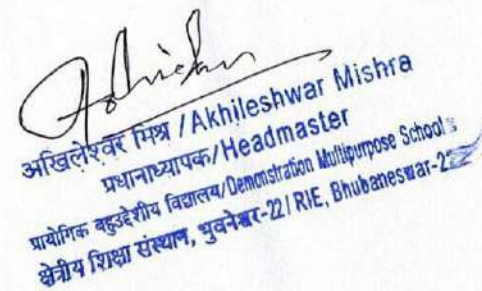 अखिलेश्वर मिश्र /Akhileshwar Mishra
प्रधानाध्यापक/Headmaster
प्रायोगिक बहुउद्देशीय विद्यालय/Demonstration Multipurpose School
क्षेत्रीय शिक्षा संस्थान, भुवनेश्वर-22/ RIE, Bhubaneswar-22